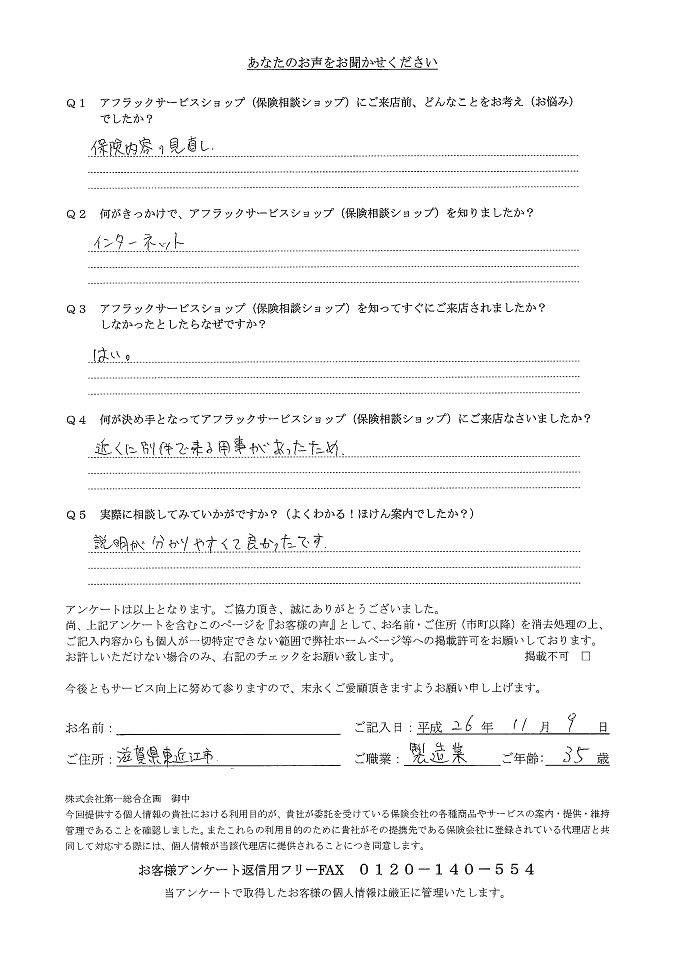 あなたのお声をお聞かせください
Q1 アフラックサービスショップ（保険相談ショップ）にご来店前、どんなことをお考え（お悩み）
でしたか？
保険内容の見直し.
Q2 何がきっかけで、アフラックサービスショップ（保険相談ショップ）を知りましたか？
インターネット
Q3 アフラックサービスショップ（保険相談ショップ）を知ってすぐにご来店されましたか？
しなかったとしたらなぜですか？
はい。
Q4 何が決め手となってアフラックサービスショップ（保険相談ショップ）にご来店なさいましたか？
近くに別件で来る用事があったため.
Q5 実際に相談してみていかがですか？（よくわかる！ほけん案内でしたか？）
説明が分かりやすくて良かったです.
アンケートは以上となります。ご協力頂き、誠にありがとうございました。
尚、上記アンケートを含むこのページを『お客様の声』として、お名前・ご住所（市町以降）を消去処理の上、
ご記入内容からも個人が一切特定できない範囲で弊社ホームページ等への掲載許可をお願いしております。
お許しいただけない場合のみ、右記のチェックをお願い致します。 掲載不可 □
今後ともサービス向上に努めて参りますので、末永くご愛顧頂きますようお願い申し上げます。
お名前： ご記入日：平成 26 年 11 月 9 日
ご住所：滋賀県東近江市. ご職業：製造業 ご年齢：35 歳
株式会社第一総合企画 御中
今回提供する個人情報の貴社における利用目的が、貴社が委託を受けている保険会社の各種商品やサービスの案内・提供・維持
管理であることを確認しました。またこれらの利用目的のために貴社がその提携先である保険会社に登録されている代理店と共
同して対応する際には、個人情報が当該代理店に提供されることにつき同意します。
お客様アンケート返信用フリーFAX 0120－140－554
当アンケートで取得したお客様の個人情報は厳正に管理いたします。